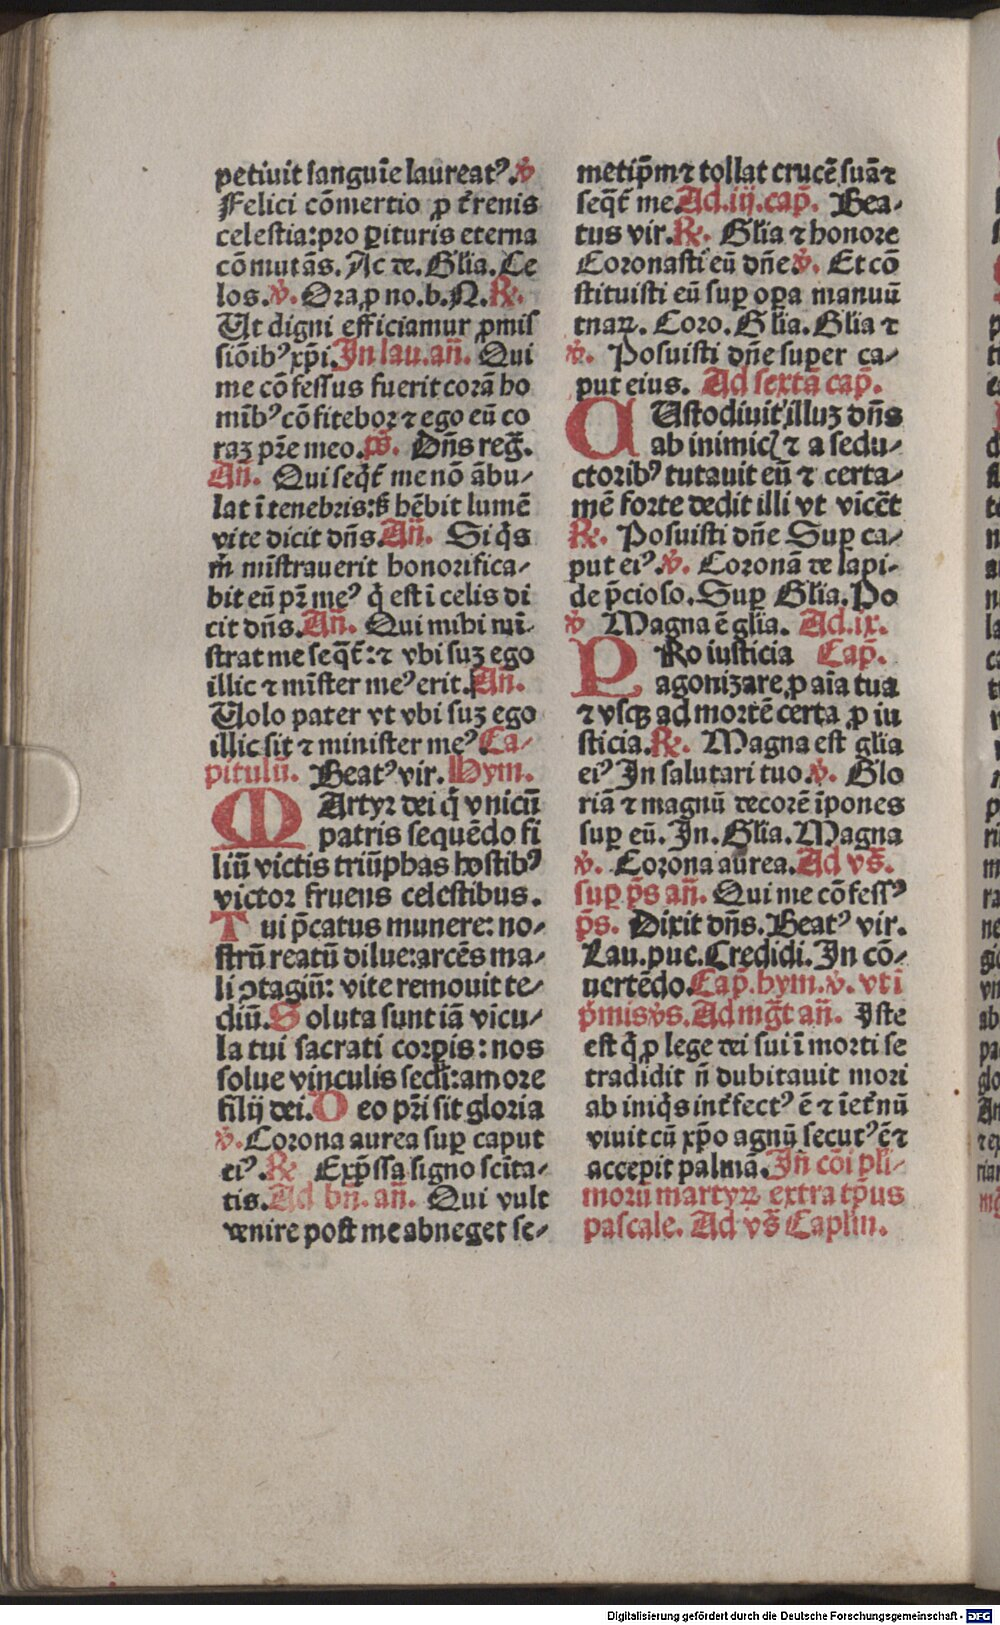 petiuit sanguīe laureatꝰ.℣
Felici cōmertio ꝓ t̄renis
celestia:pro ꝑituris eterna
cōmutās. Ac te. Glīa. Ce
los.℣. Ora ꝓ no.b.N.℟.
Ut digni efficiamur ꝓmis
siōibꝰ xp̄i. In lau.an̄. Qui
me cōfessus fuerit corā ho
mībꝰ cōfitebor ⁊ ego eū co
raꝫ pr̄e meo. ps̄. Dn̄s reḡ.
An̄. Qui seqt̄ me nō ābu⸗
lat ī tenebris:sꝫ hēbit lumē
vite dicit dn̄s. An̄. Si qs̄
m̄ mīstrauerit honorifica⸗
bit eū pr̄ meꝰ q̄ est ī celis di
cit dn̄s. An̄. Qui mihi mi⸗
strat me seqt̄:⁊ vbi suꝫ ego
illic ⁊ mīster meꝰ erit. An̄.
Uolo pater vt vbi suꝫ ego
illic sit ⁊ minister meꝰ. Ca⸗
pitulū. Beatꝰ vir. Hym.
MArtyr dei q̄ vnicū
patris sequēdo fi
liū victis triūphas hostibꝰ
victor fruens celestibus.
Tui p̄catus munere: no⸗
strū reatū dilue:arcēs ma⸗
li ꝯtagiū: vite remouit te⸗
diū. Soluta sunt iā vicu⸗
la tui sacrati corꝑis: nos
solue vinculis secli:amore
filij dei. Deo pr̄i sit gloria
℣. Corona aurea suꝑ caput
eiꝰ. ℟ Exp̄ssa signo scīta⸗
tis. Ad bn̄. an̄. Qui vult
venire post me abneget se⸗
metip̄m ⁊ tollat crucē suā ⁊
seqt̄ me. Ad.iij.cap̄. Bea⸗
tus vir. ℟. Glīa ⁊ honore
Coronasti eū dn̄e. ℣. Et cō
stituisti eū suꝑ oꝑa manuū
tuaꝝ. Coro. Glīa. Glīa ⁊
℣. Posuisti dn̄e super ca⸗
put eius. Ad sextā cap̄.
CUstodiuit illuꝫ dn̄s
ab inimicꝭ ⁊ a sedu⸗
ctoribꝰ tutauit eū ⁊ certa⸗
mē forte dedit illi vt vīcēt
℟. Posuisti dn̄e Suꝑ ca⸗
put eiꝰ. ℣. Coronā de lapi⸗
de p̄cioso. Suꝑ Glīa. Po
℣ Magna ē glīa. Ad.ix.
PRo iusticia Cap̄.
agonizare ꝓ aīa tua
⁊ vsqꝫ ad mortē certa ꝓ iu
sticia. ℟. Magna est glīa
eiꝰ In salutari tuo. ℣. Glo
riā ⁊ magnū decorē īpones
suꝑ eū. In. Glīa. Magna
℣. Corona aurea. Ad vs̄.
suꝑ ps̄ an̄. Qui me cōfessꝰ
ps̄. Dixit dn̄s. Beatꝰ vir.
Lau.pue. Credidi. In cō⸗
uertēdo. Cap̄.hym.℣. vt ī
p̄mis vs̄. Ad mḡt an̄. Iste
est q̄ ꝓ lege dei sui ī morti se
tradidit n̄ dubitauit mori
ab iniqs̄ int̄fectꝰ ē ⁊ īet̄nū
viuit cū xp̄o agnū secutꝰ ē ⁊
accepit palmā. In̄ cōi pli⸗
morū martyꝝ extra tp̄us
pascale. Ad vs̄ Caplm̄.
Digitalisierung gefördert durch die Deutsche Forschungsgemeinschaft - DFG